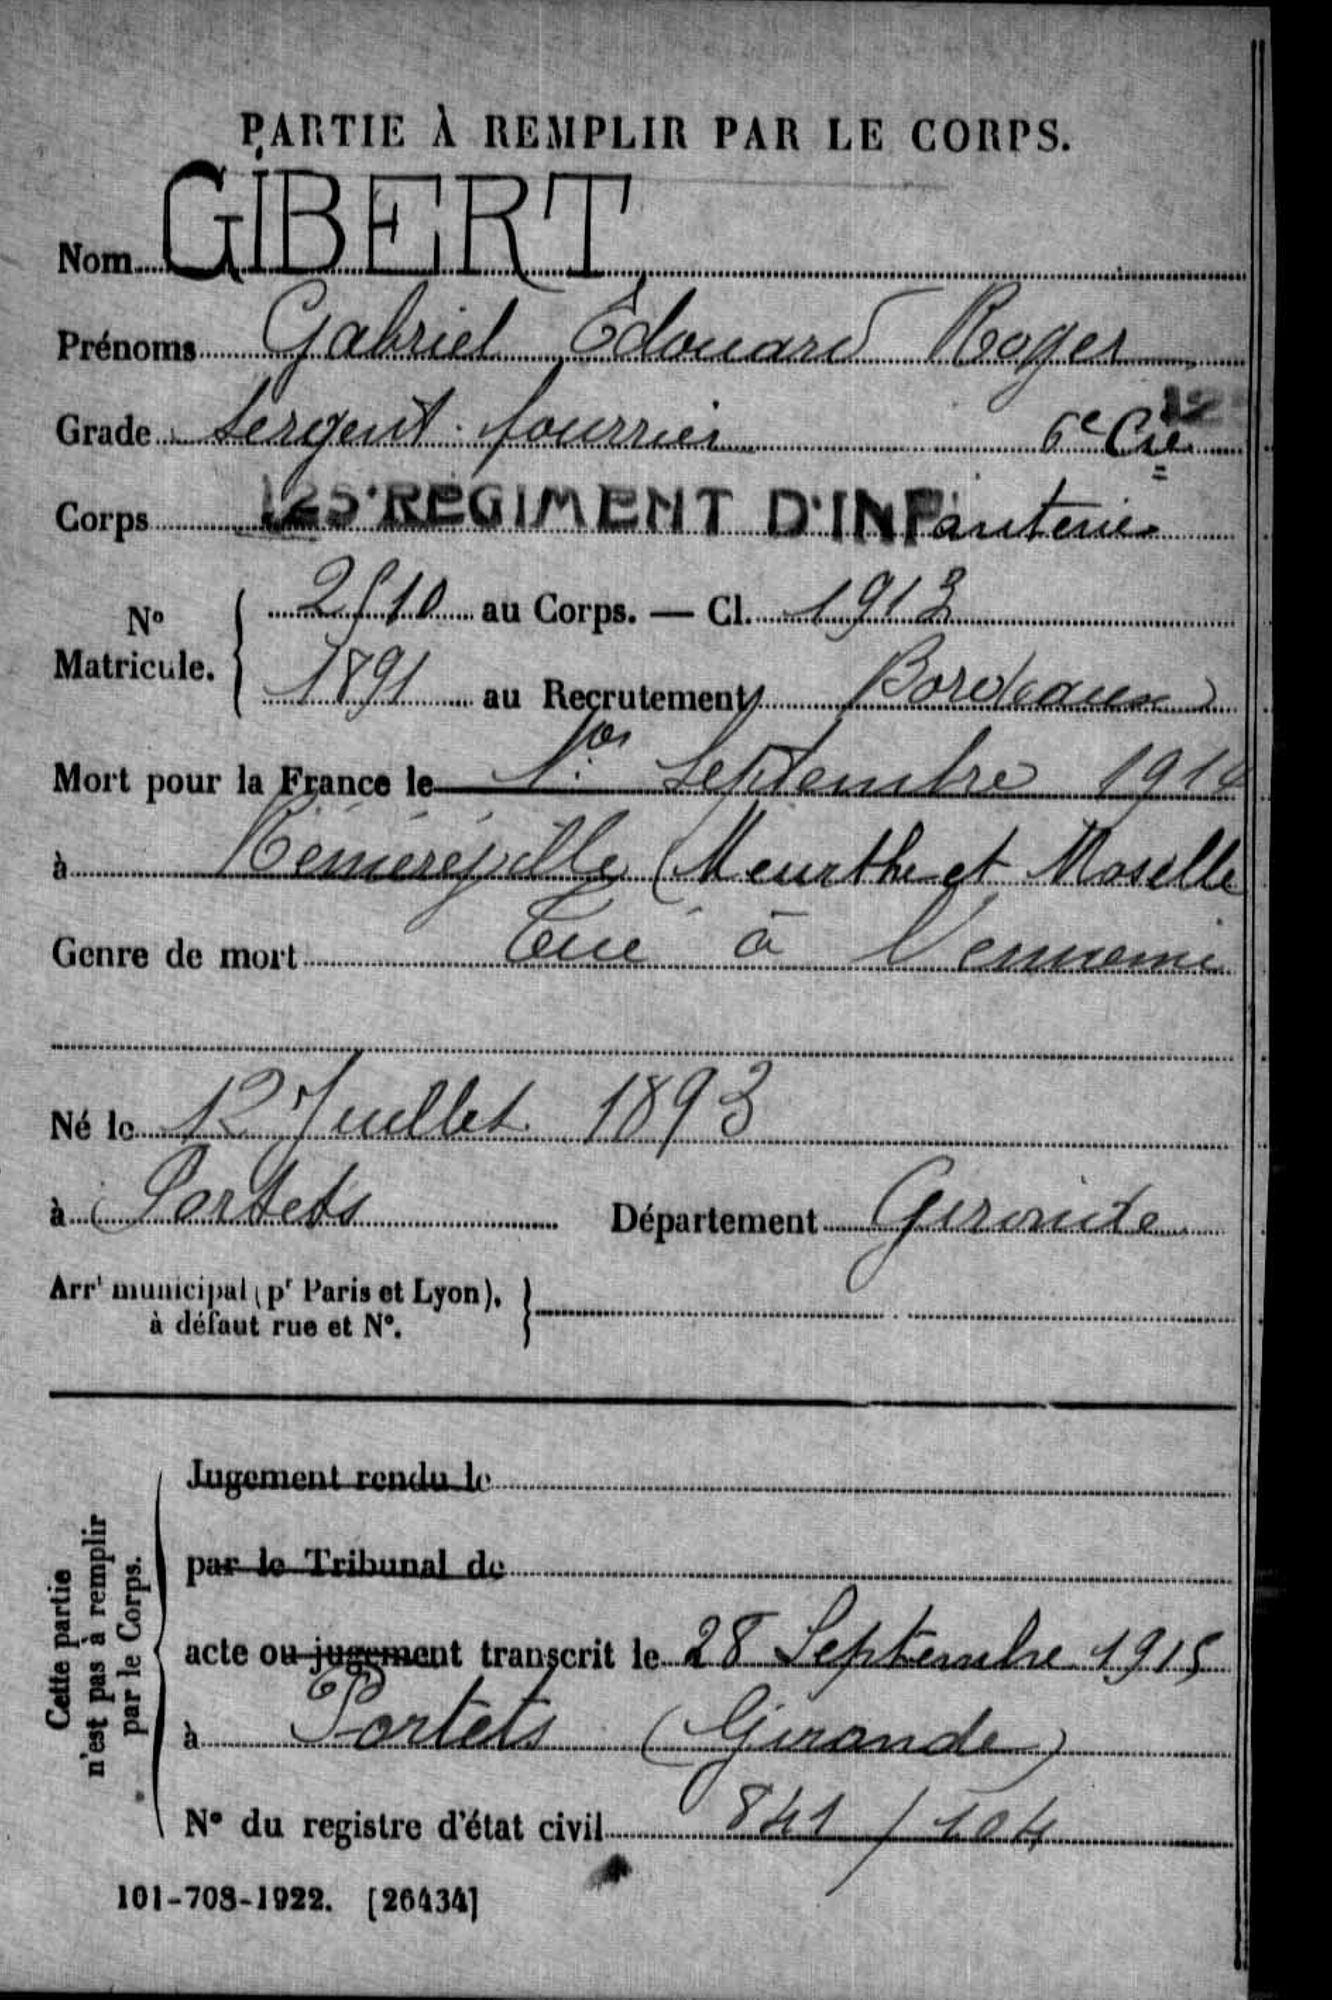 PARTIE À REMPLIR PAR LE CORPS.
Nom GIBERT
Prénoms Gabriel Edouard Roger
Grade Sergent fourrier 6e Cie
Corps 125e REGIMENT D'INFanterie
No Matricule. 2510 au Corps. — Cl. 1913
1891 au Recrutement Bordeaux
Mort pour la France le 1er Septembre 1914
à Réméréville (Meurthe et Moselle
Genre de mort Tué à l'ennemi
Né le 12 Juillet 1893
à Portets Département Gironde
Arrt municipal (pr Paris et Lyon),
à défaut rue et No.
Cette partie
n'est pas à remplir
par le Corps.
Jugement rendu le
par le Tribunal de
acte ou jugement transcrit le 28 Septembre 1915
à Portets (Gironde)
No du registre d'état civil 841 / 104
101-708-1922. [26434]